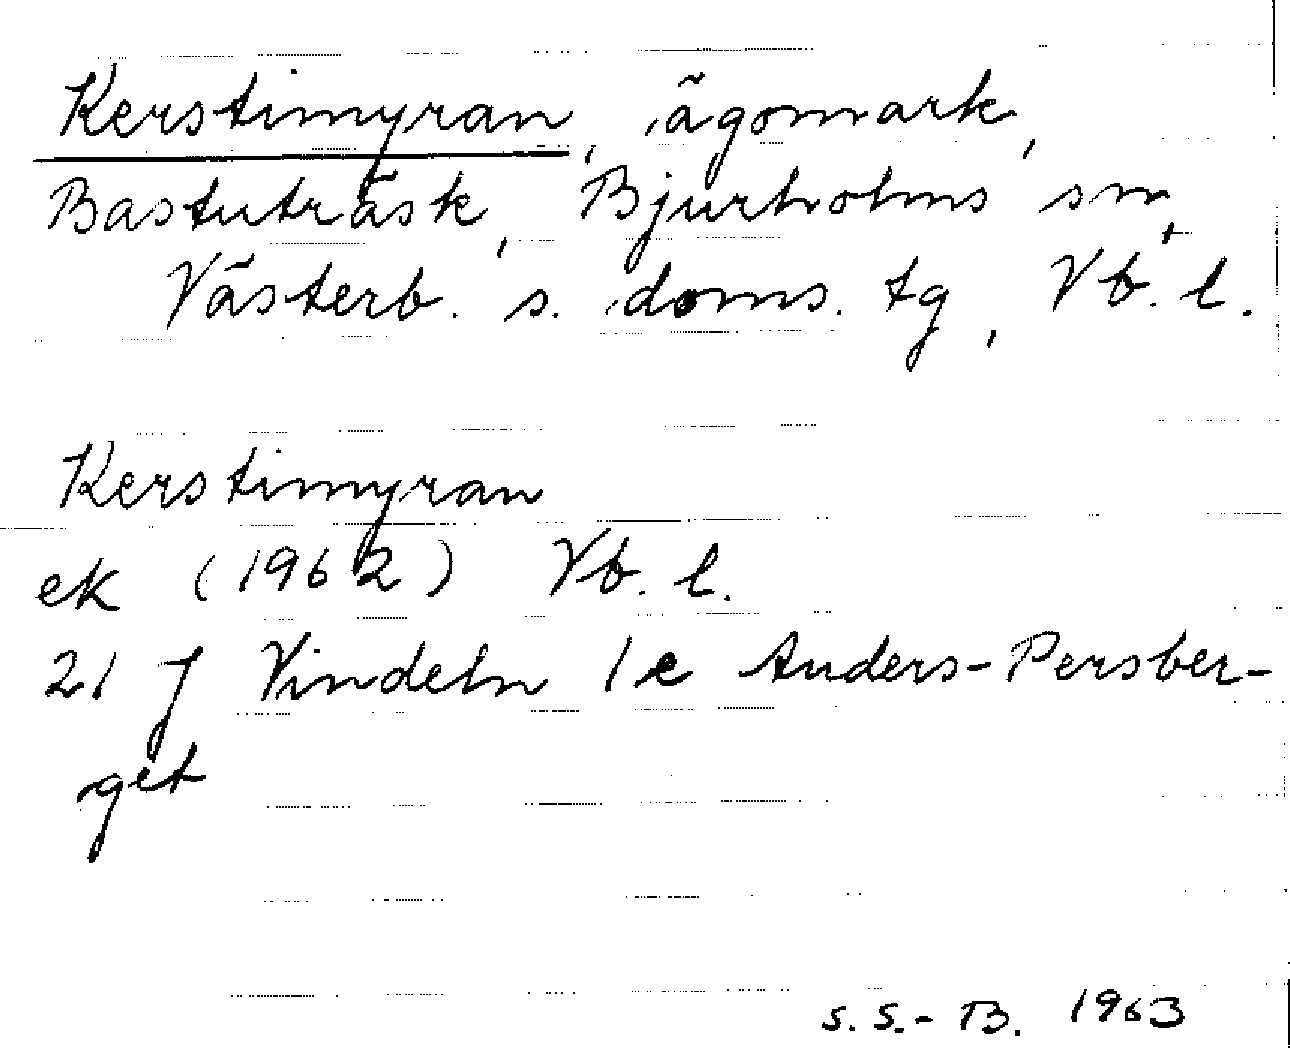 Kerstimyran, ägomark,
Bastuträsk, Bjurholms sn,
Västerb. s. doms. tg, Vb. l.
Kerstimyran
ek (1962) Vb. l.
21 J Vindeln 1e Anders-Persber-
get
S. S.-B. 1963